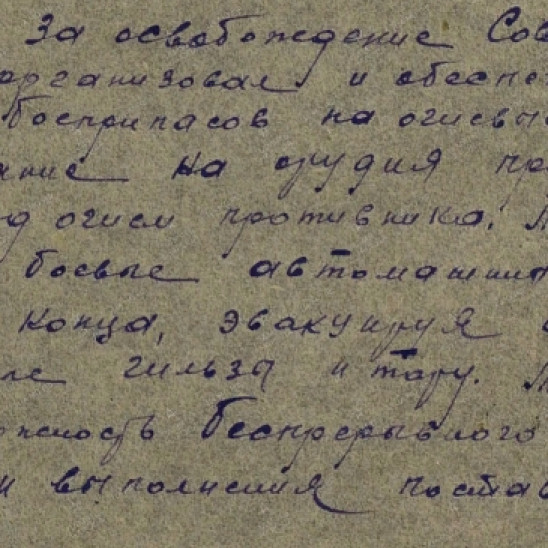 За освобождение Сов
организовал и обеспе
боеприпасов на огневы
ание на орудия пр
од огнем противника.
боевые автомашин
конца, эвакуируя
ые гильзы и тару.
ожность беспрерывного
и выполнения постав